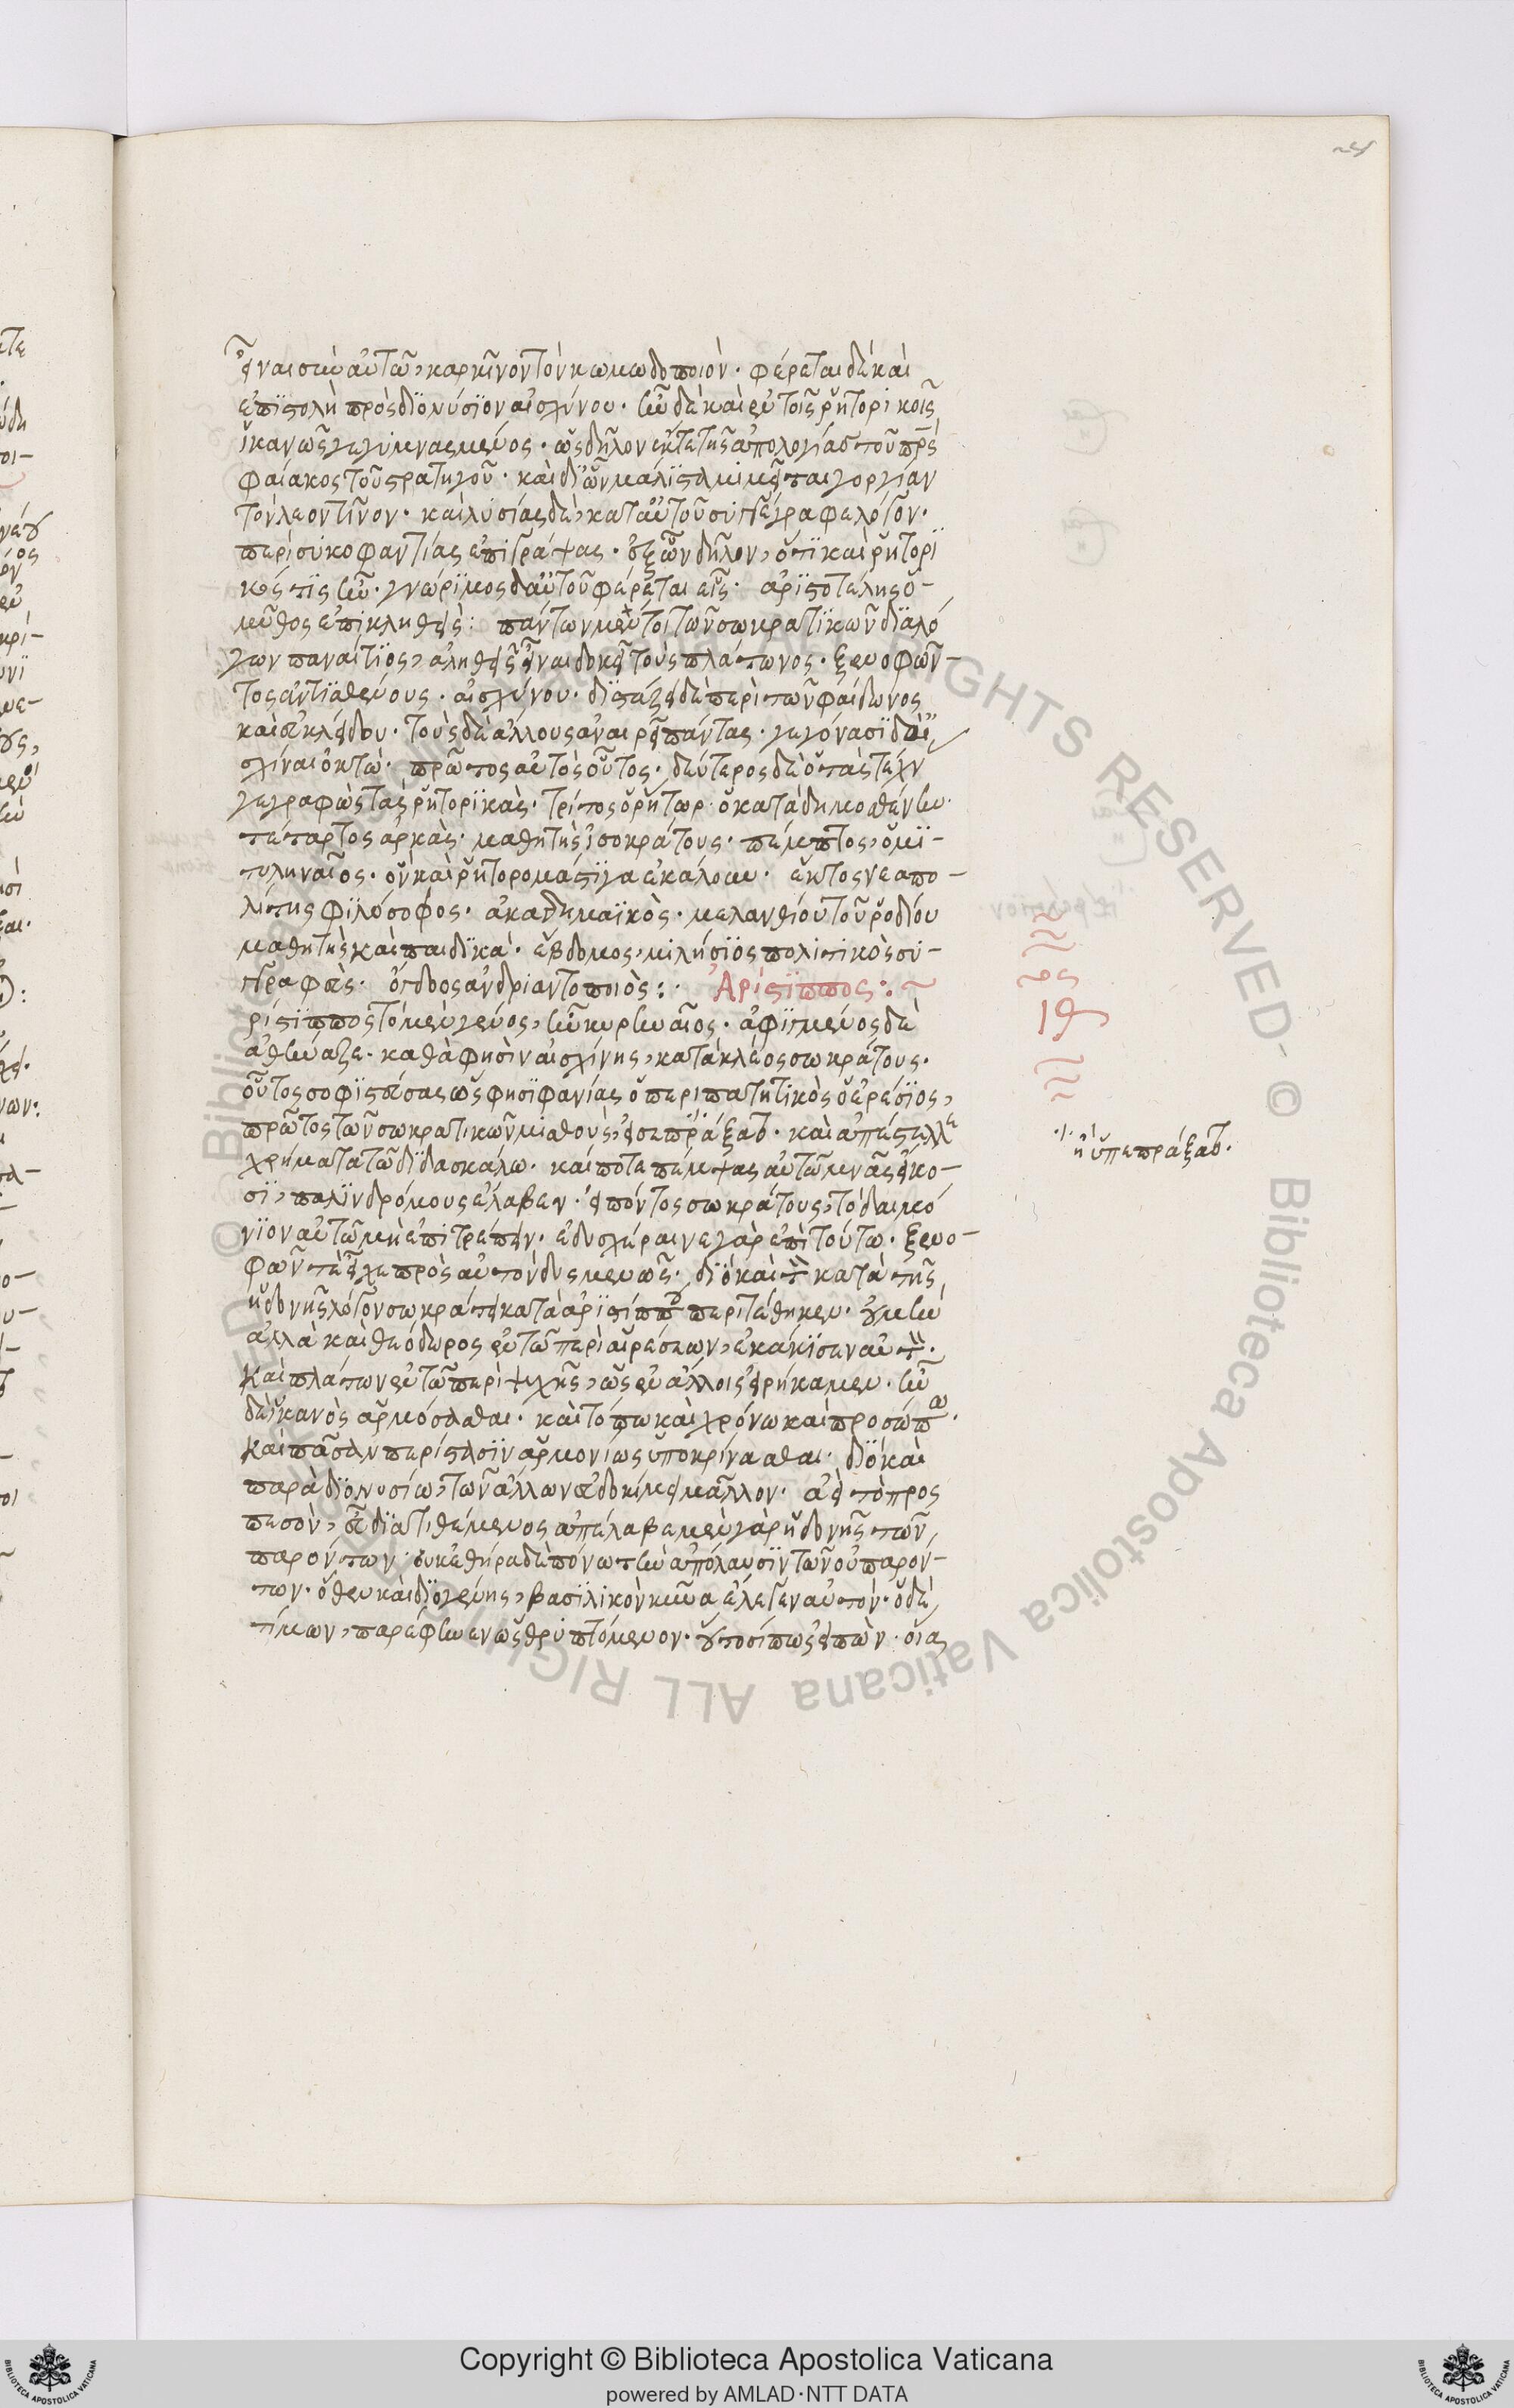 εἶναι σὺν αὐτῶ, καρκῖνον τὸν κωμωδοποιόν. φέρεται δὲ καὶ
ἐπϊστολὴ πρὸς διονύσϊον αἰσχίνου. ἦν δὲ καὶ ἐν τοῖς ῥητορικοῖς
ἱκανῶς γεγυμνασμένος. ὡς δῆλον ἔκ τε τῆς ἀπολογίας τοῦ πρς
φαίακος τοῦ στρατηγοῦ. καὶ δι' ὧν μάλϊστα μιμεῖται γοργίαν
τὸν λεοντῖνον. καὶ λυσίας δὲ, κατ' αὐτοῦ συγγέγραφε λόγον.
περὶ συκοφαντίας ἐπιγράψας. ἐξ ὧν δῆλον, ὅτϊ καὶ ῥητορϊ
κός τϊς ἦν. γνώρϊμος δ' αὐτοῦ φέρεται εἷς. ἀρϊστοτέλης ὁ-
μῦθος ἐπικληθείς: πάντων μέντοι τῶν σωκρατϊκῶν διαλό
γων παναίτϊος, ἀληθεῖς εἶναι δοκεῖ τοὺς πλάτωνος. ξενοφῶν-
τος ἀντϊσθένους. αἰσχίνου. δϊστάζει δὲ περὶ τῶν φαίδωνος
καὶ εὐκλείδου. τοὺς δὲ ἄλλους ἀναιρεῖ πάντας. γεγόνασϊ δ' αἰ
σχίναι ὀκτώ. πρῶτος αὐτὸς οὗτος. δεύτερος δὲ ὁ τὰς τέχν
γεγραφὼς τὰς ῥητορϊκάς. τρίτος ὁ ῥήτωρ ὁ κατὰ δημοσθένην.
τέταρτος ἀρκάς. μαθητὴς ἰσοκράτους. πέμπτος, ὁ μϊ-
τυληναῖος. ὃν καὶ ῥητορομάστϊγα ἐκάλουν. ἕκτος νεαπο-
λίτης φϊλόσοφος. ἀκαδημαϊκὸς. μελανθίου τοῦ ῥοδίου
μαθητὴς καὶ παιδϊκά. ἕβδομος, μιλήσϊος πολιτικὸς συ-
γγραφεύς. ὄγδοος ἀνδριαντοποιὸς:. Ἀρίστϊππος:~
ρίστϊππος τὸ μὲν γένος, ἦν κυρηναῖος. ἀφϊγμένος δὲ
ἀθήναζε. καθά φησὶν αἰσχίνης, κατὰ κλέος σωκράτους.
οὗτος σοφϊστεύσας ὥς φησϊ φανίας ὁ περιπατητϊκὸς ὁ ἐρέσϊος,
πρῶτος τῶν σωκρατικῶν μισθοὺς, εἰσεπράξατο. καὶ ἀπέστελλε
χρήματα τῶ δϊδασκάλω. καί ποτε πέμψας αὐτῶ μνᾶς εἴκο-
σϊ, παλϊνδρόμους ἔλαβεν. εἰπόντος σωκράτους, τὸ δαιμό
νϊον αὐτῶ μὴ ἐπιτρέπειν. ἐδυσχέραινε γὰρ ἐπὶ τούτω. ξενο-
φῶν τε εἶχε πρὸς αὐτὸν δυσμενῶς. δϊὸ καὶ τὸν κατὰ τῆς
ἡδονῆς λόγον σωκράτει κατὰ ἀρϊστίππου περιτέθηκεν. οὐ μὴν
ἀλλὰ καὶ θεόδωρος ἐν τῶ περὶ αἱρέσεων, ἐκάκϊσεν αὐτόν.
καὶ πλάτων ἐν τῶ περὶ ψυχῆς, ὡς ἐν ἄλλοις εἰρήκαμεν. ἦν
δὲ ἱκανὸς ἁρμόσασθαι. καὶ τόπω καὶ χρόνω καὶ προσώπω.
καὶ πᾶσαν περίστασϊν ἁρμονίως ὑποκρίνασθαι. διὸ καὶ
παρὰ διονυσίω, τῶν ἄλλων εὐδοκίμει μᾶλλον. ἀεὶ τὸ προς
πεσὸν, εὖ δϊατιθέμενος ἀπέλαβε μὲν γὰρ ἡδονῆς τῶν
παρόντων. οὐκ ἐθήρα δὲ πόνω τὴν ἀπόλαυσϊν τῶν οὐ παρόν-
των. ὅθεν καὶ διογένης, βασϊλικὸν κύνα ἔλεγεν αὐτόν. ὁ δὲ
τίμων, παρέφηνεν ὡς θρυπτόμενον. οὑτοσίπως εἰπὼν. οἷας
ιθ
ἢ ὑπεπράξατο.
Copyright © Biblioteca Apostolica Vaticana
powered by AMLAD·NTT DATA